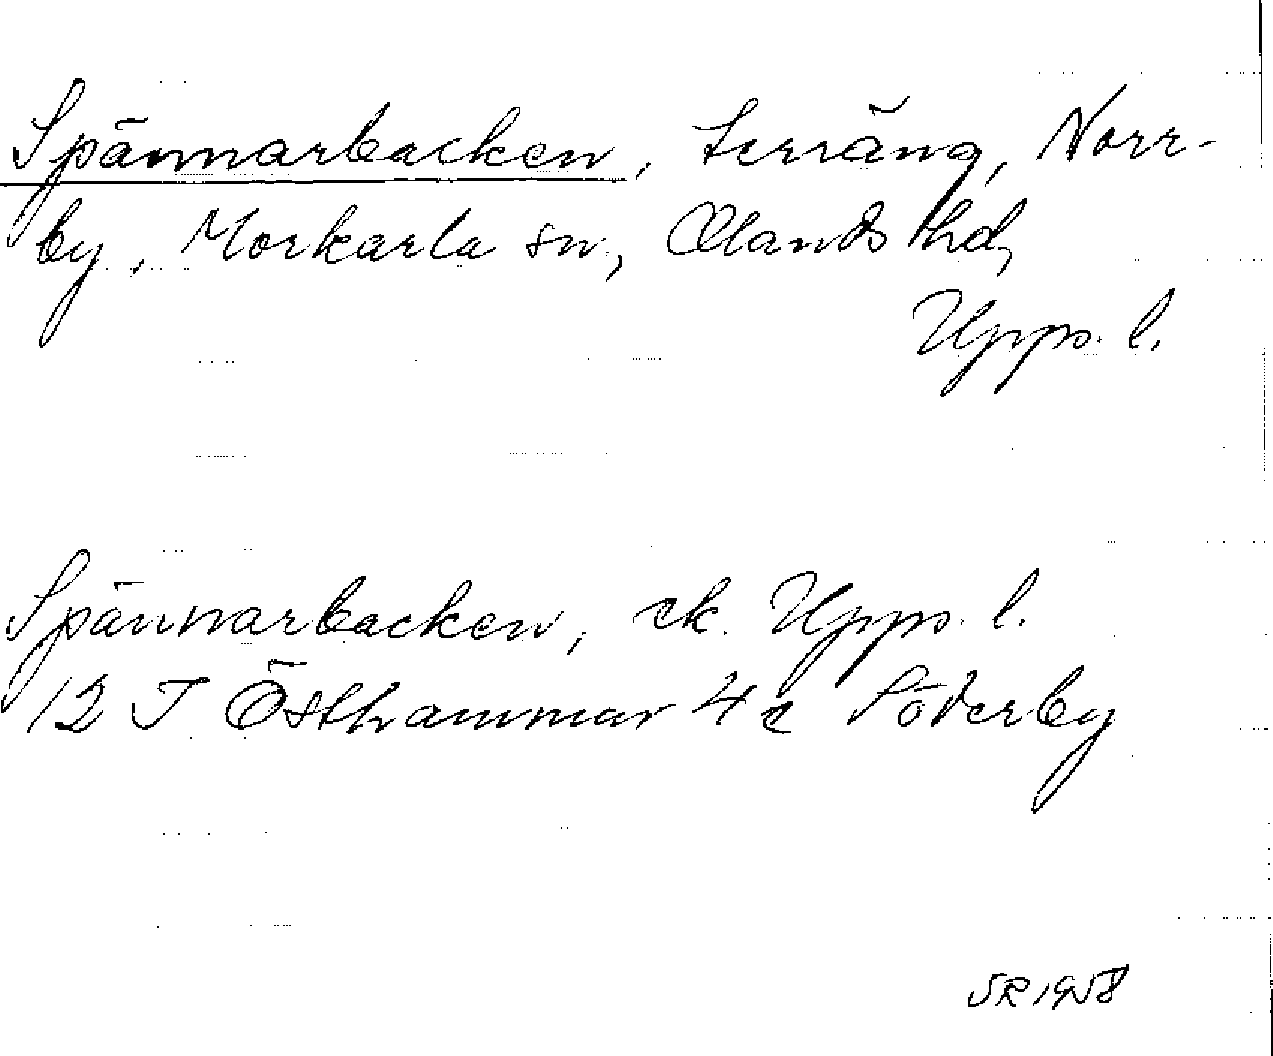 Spännarbacken, terräng, Norr-
by, Morkarla sn, Olands hd,
Upps. l.
Spännarbacken, ek. Upps. l.
12 I Östhammar 4 c Söderby
SR 1958